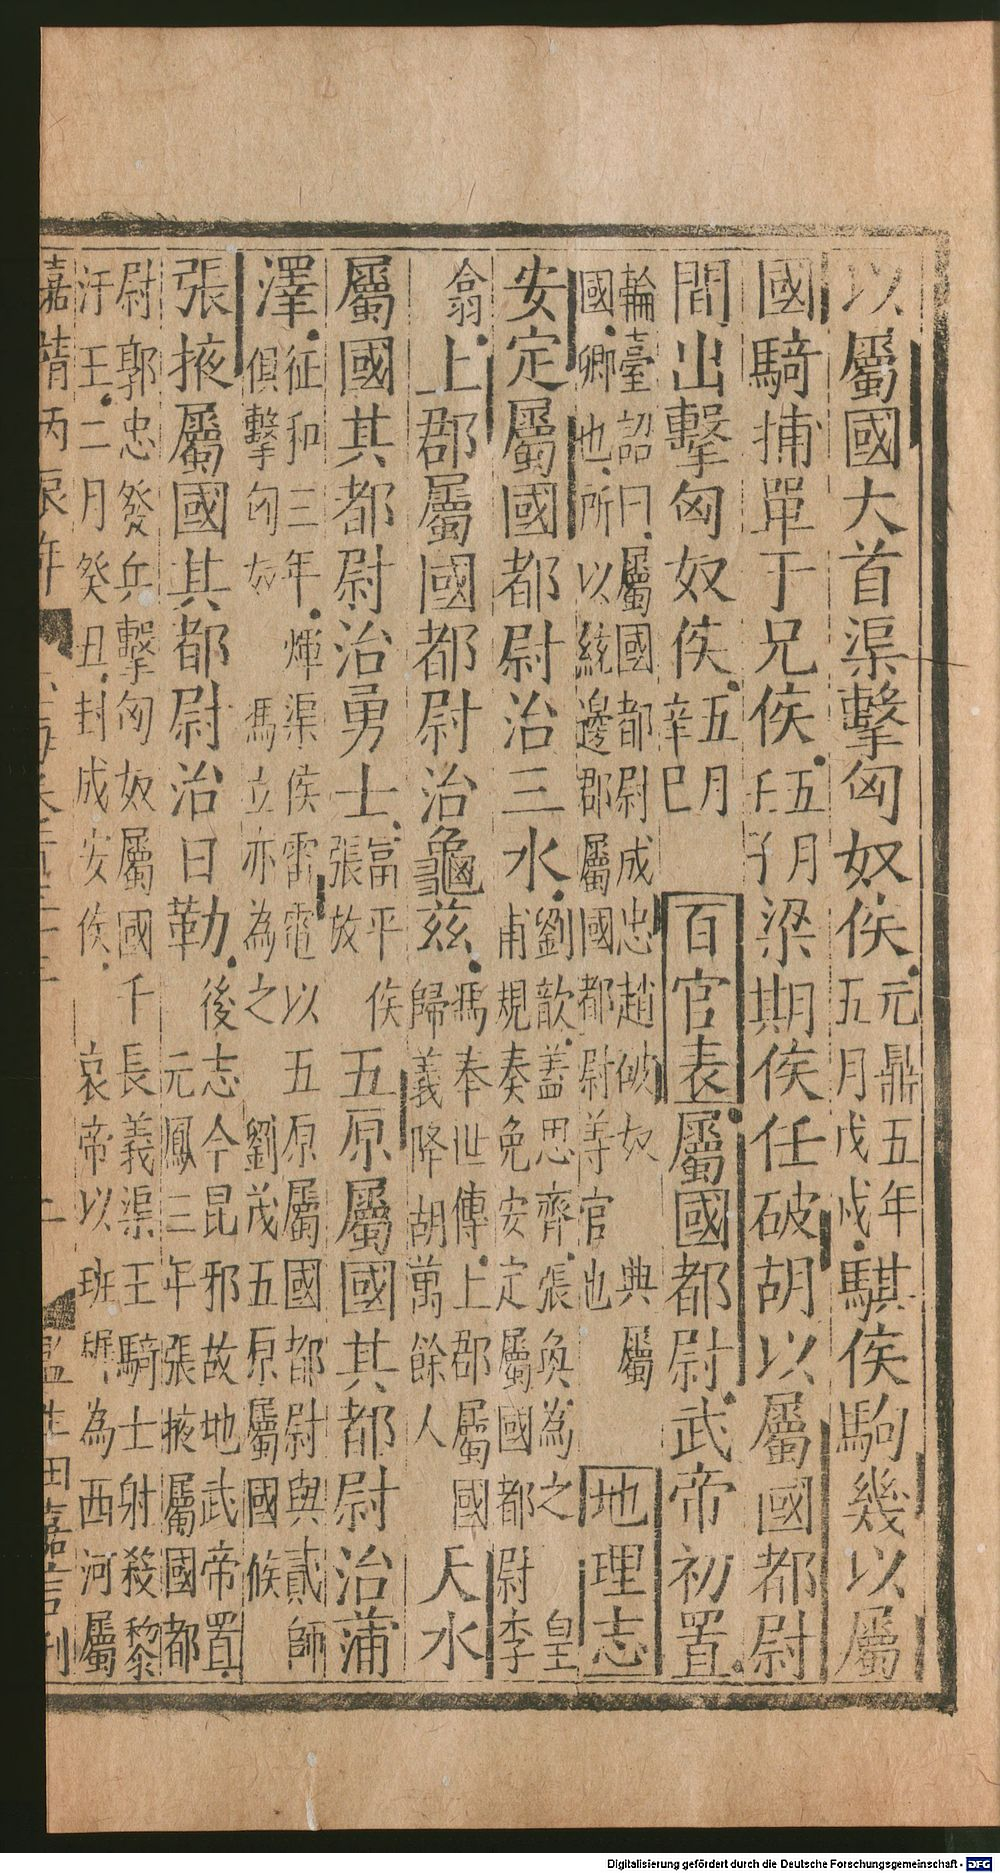 以屬國大首渠擊匈奴侯元鼎五年五月戊戌騏侯駒幾以屬
國騎捕單于兄侯五月壬子梁期侯任破胡以屬國都尉
間出擊匈奴侯五月辛巳百官表屬國都尉武帝初置
輪臺詔曰屬國都尉成忠趙破奴典屬
國卿也所以統邊郡屬國都尉等官也地理志
安定屬國都尉治三水劉歆蓋思齊張奐為之皇
甫規奏免安定屬國都尉李
翕上郡屬國都尉治龜茲馮奉世傳上郡屬國
歸義降胡萬餘人天水
屬國其都尉治勇士富平侯
張放五原屬國其都尉治蒲
澤征和三年煇渠侯雷電以五原屬國都尉與貳師
俱擊匈奴馮立亦為之劉茂五原屬國候
張掖屬國其都尉治日勒後志今昆邪故地武帝置
元鳳三年張掖屬國都
尉郭忠發兵擊匈奴屬國千長義渠王騎士射殺黎
汙王二月癸丑封成安侯哀帝以班為西河屬
嘉靖丙辰年 監生田嘉言刊
Digitalisierung gefördert durch die Deutsche Forschungsgemeinschaft - DFG